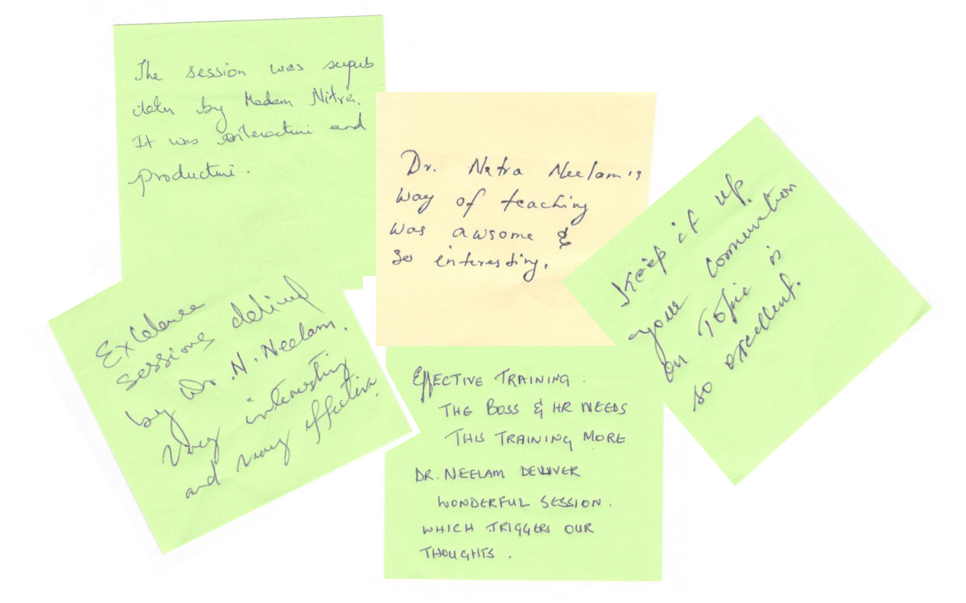 The session was superb
by Madam Nitra.
It was interactive and
productive.
Dr. Netra Neelam's
way of teaching
was awsome &
so interesting.
Keep it up
your
on Topic is
so excellent.
Excelence
sessions
by Dr. N. Neelam.
Very interesting
and very effective.
EFFECTIVE TRAINING.
THE BOSS & HR NEEDS
THIS TRAINING MORE
DR. NEELAM DELIVER
WONDERFUL SESSION.
WHICH TRIGGERS OUR
THOUGHTS.